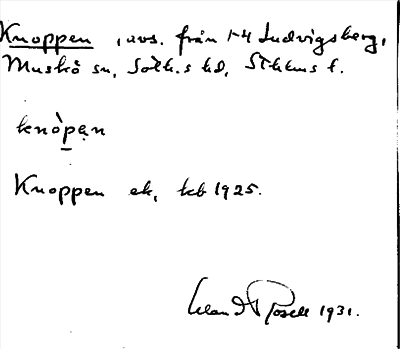 Knoppen, avs. från 1-4 Ludvigsberg,
Muskö sn, Soth.s hd, Sthlms l.
knòpən
Knoppen ek, kb 1925.
Rosell 1931.